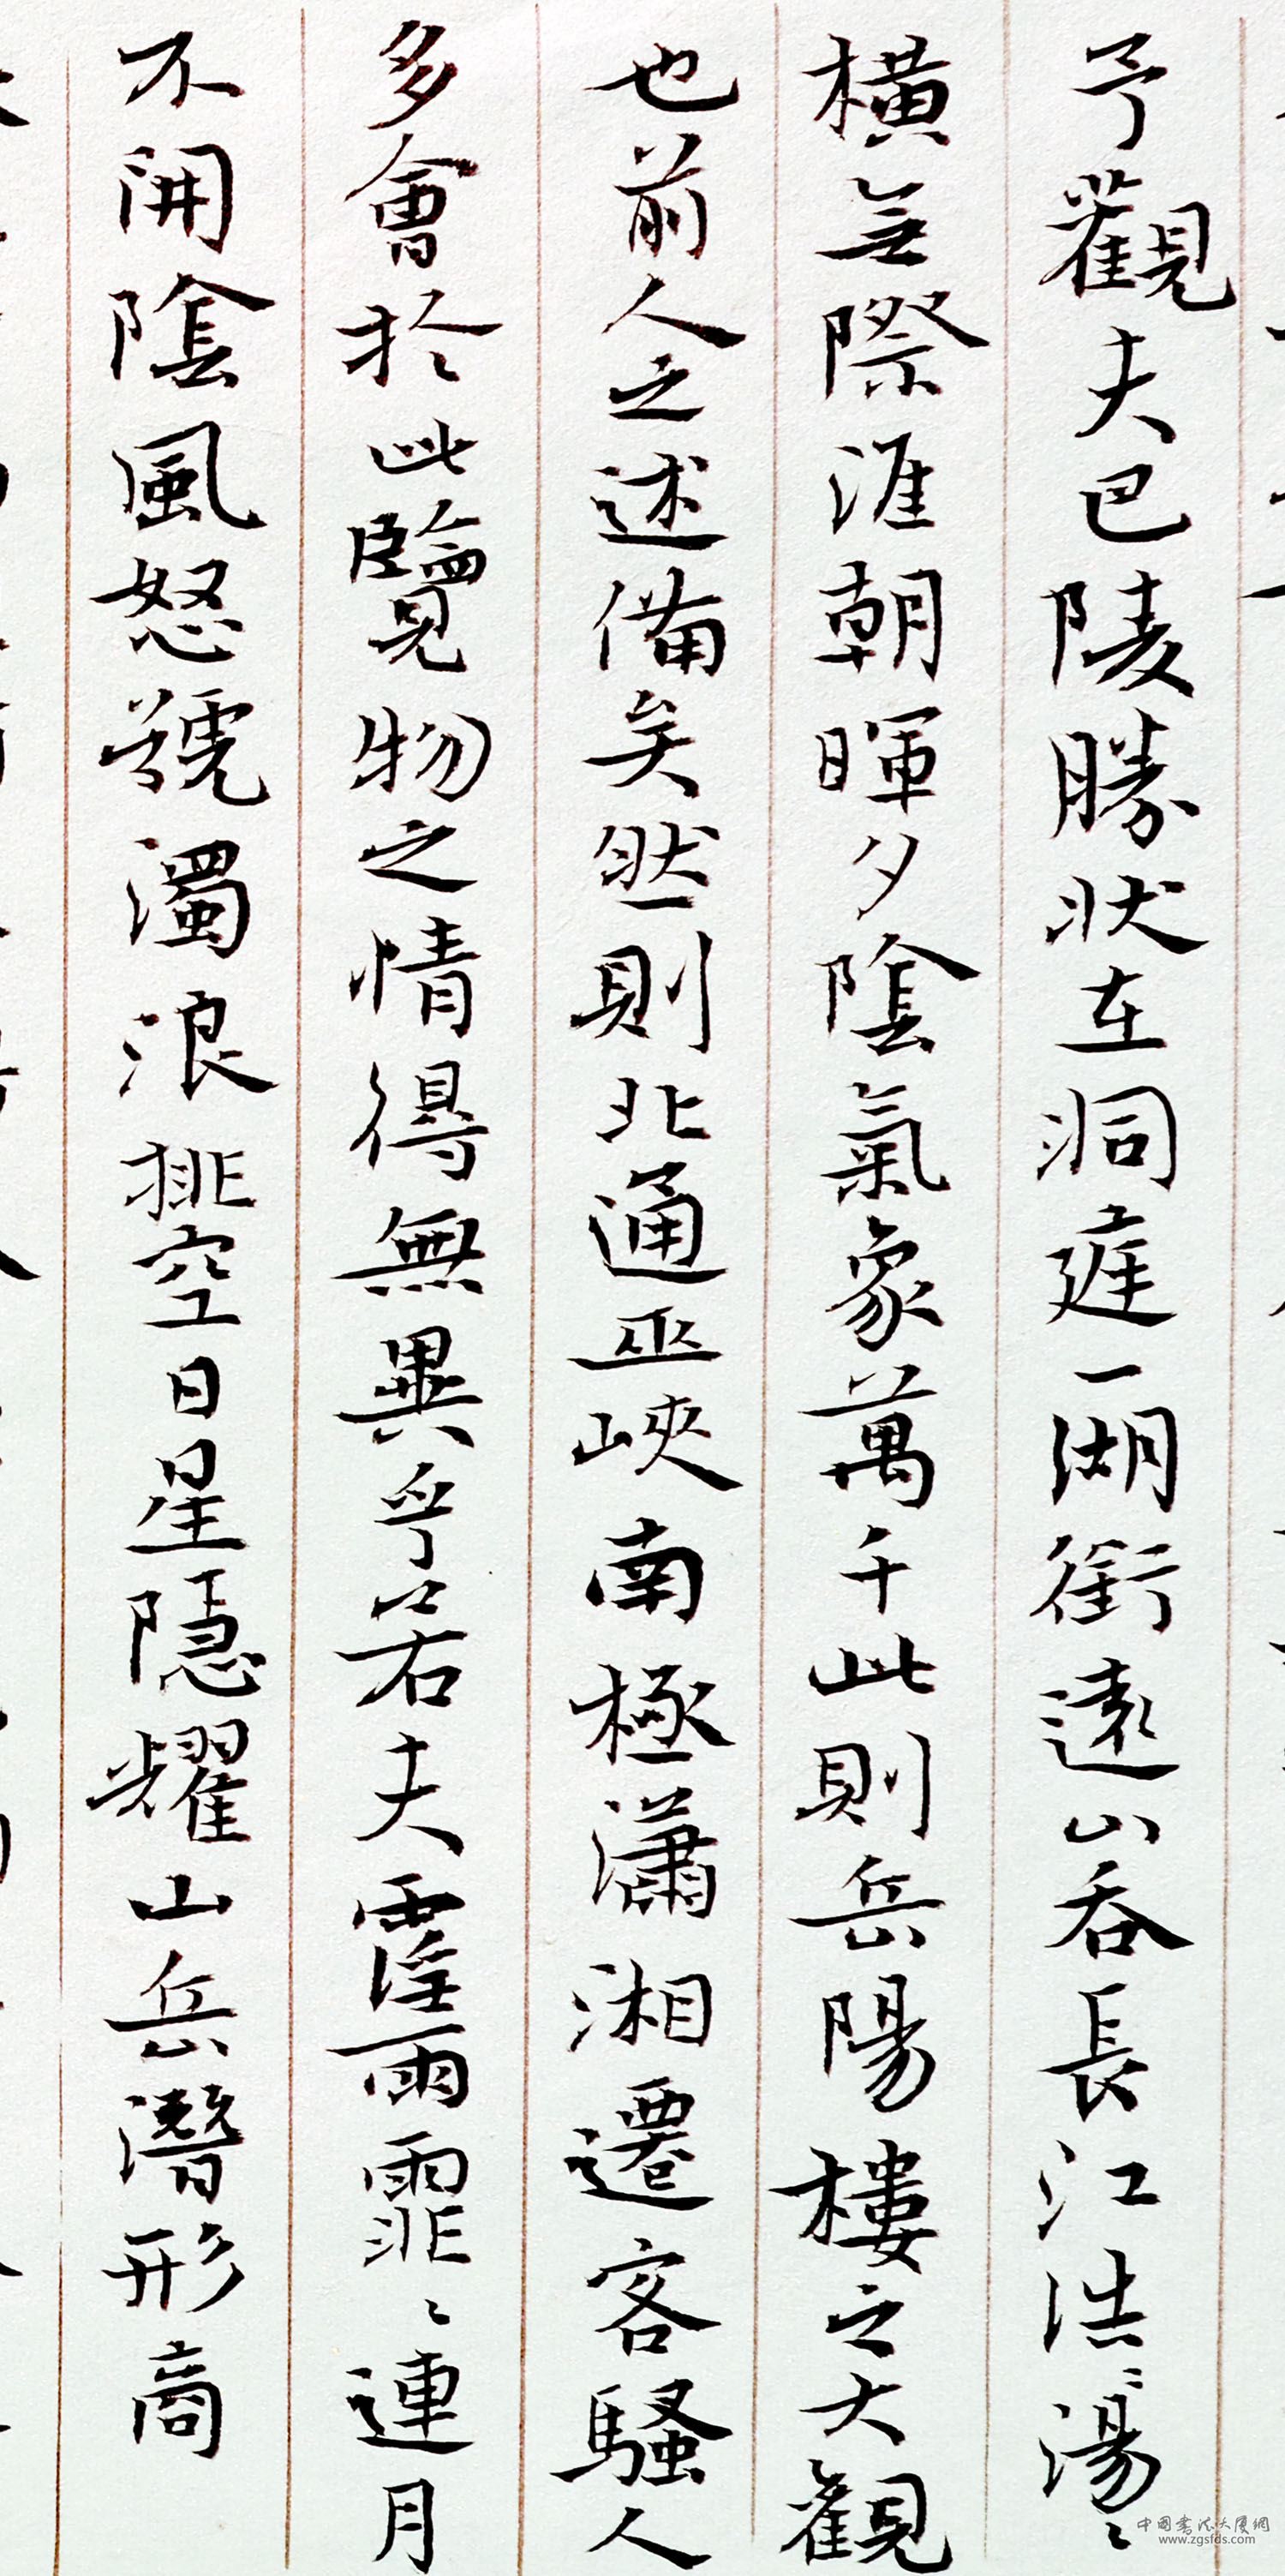 予觀夫巴陵勝狀在洞庭一湖銜遠山吞長江浩〻湯〻
橫無際涯朝暉夕陰氣象萬千此則岳陽樓之大觀
也前人之述備矣然則北通巫峽南極瀟湘遷客騷人
多會於此覽物之情得無異乎若夫霪雨霏〻連月
不開陰風怒號濁浪排空日星隱耀山岳潛形商
中國書法大厦網
www.zgsfds.com